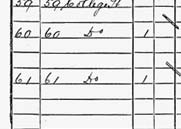 59 59 College St
60 60 Do 1
61 61 Do 1